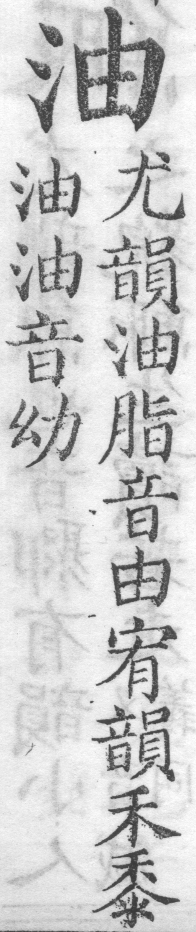 油
尤韻油脂音由宥韻禾黍
油油音幼